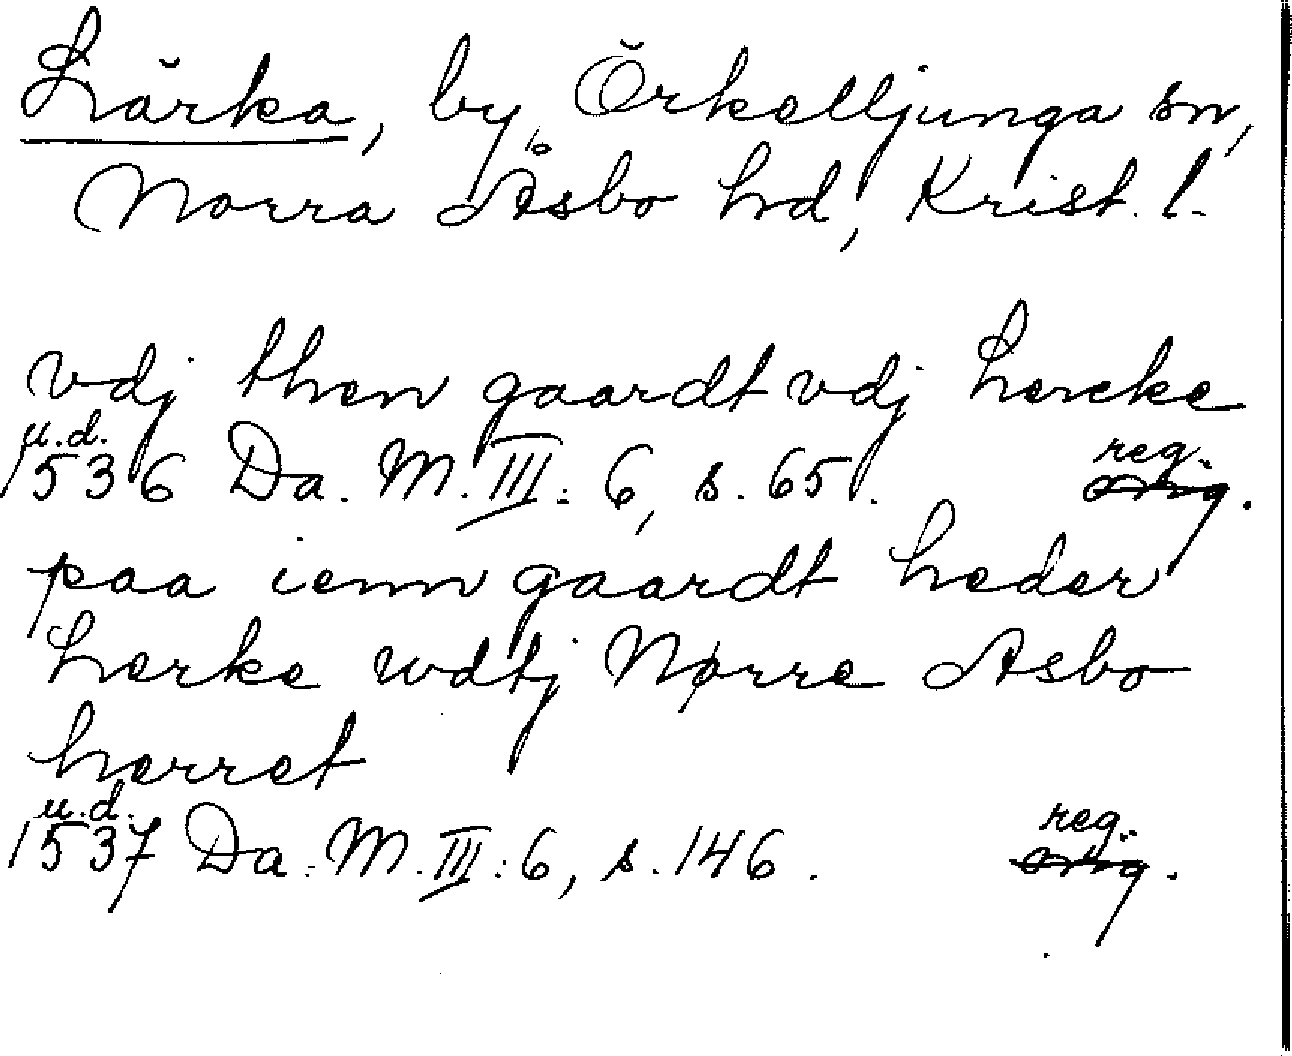 Lärka, by, Örkelljunga sn,
Norra Åsbo hd, Krist. l.
vdj then gaardt vdj Lercke
u.d. reg.
1536 Da. M. III: 6, s. 65. orig.
paa ienn gaardt heder
Lerke wdtj Nørre Asbo
herret
u.d. reg.
1537 Da. M. III: 6, s. 146. orig.